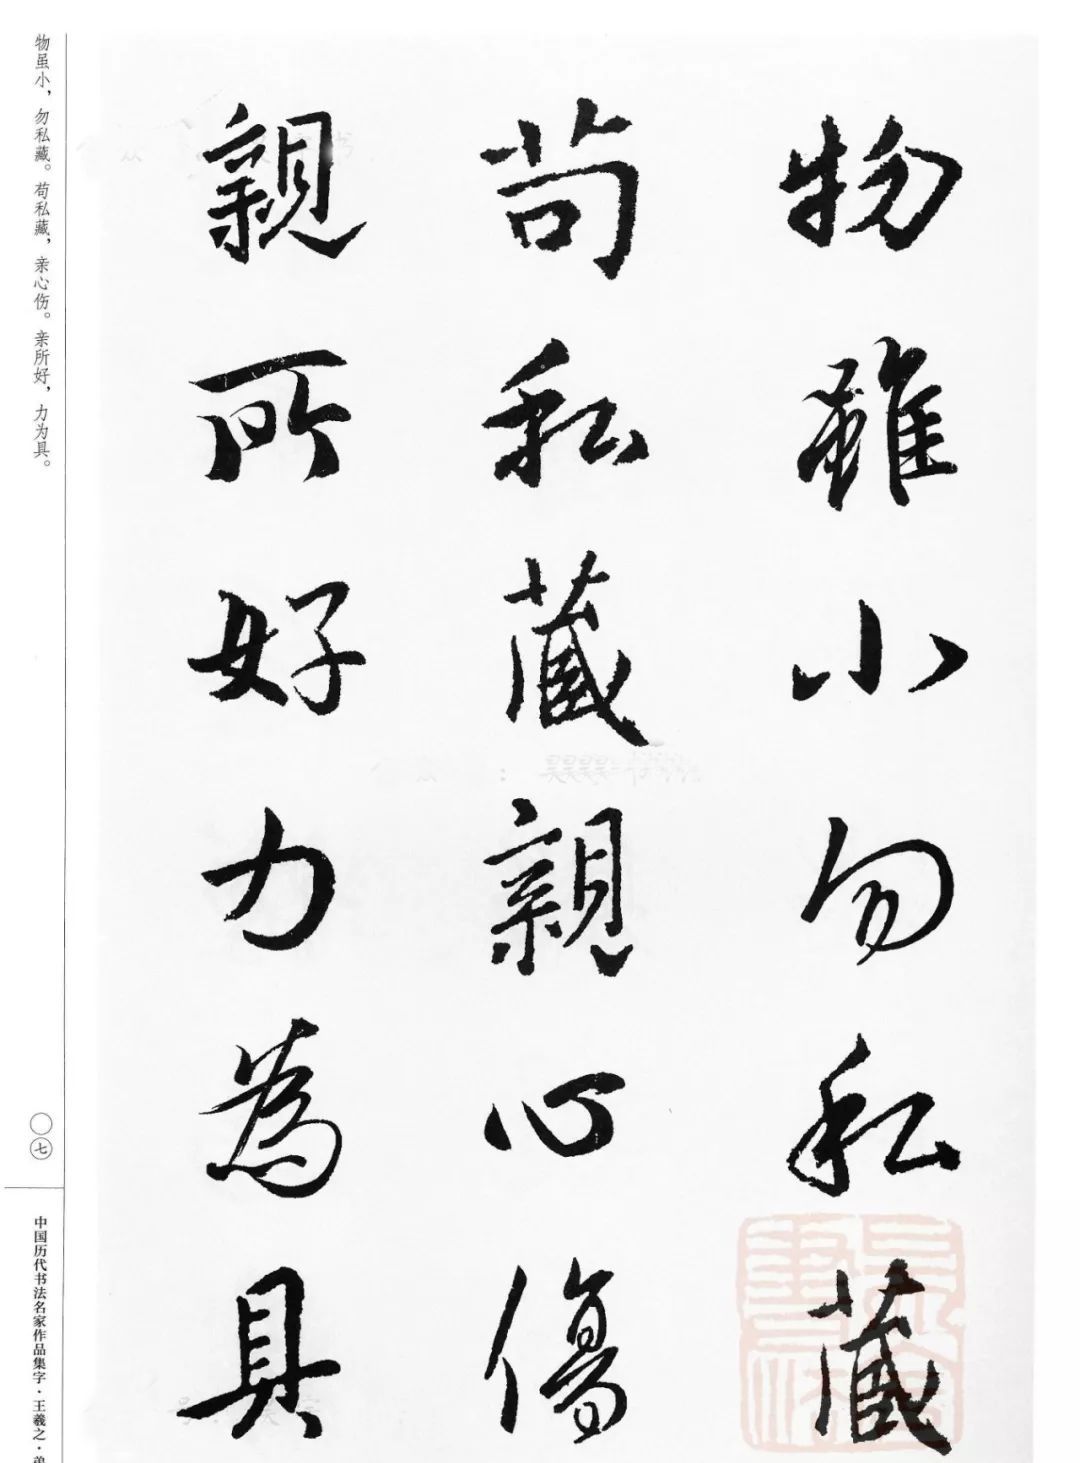 物雖小勿私藏
苟私藏親心傷
親所好力為具
物虽小，勿私藏。苟私藏，亲心伤。亲所好，力为具。
〇七
中国历代书法名家作品集字·王羲之·弟